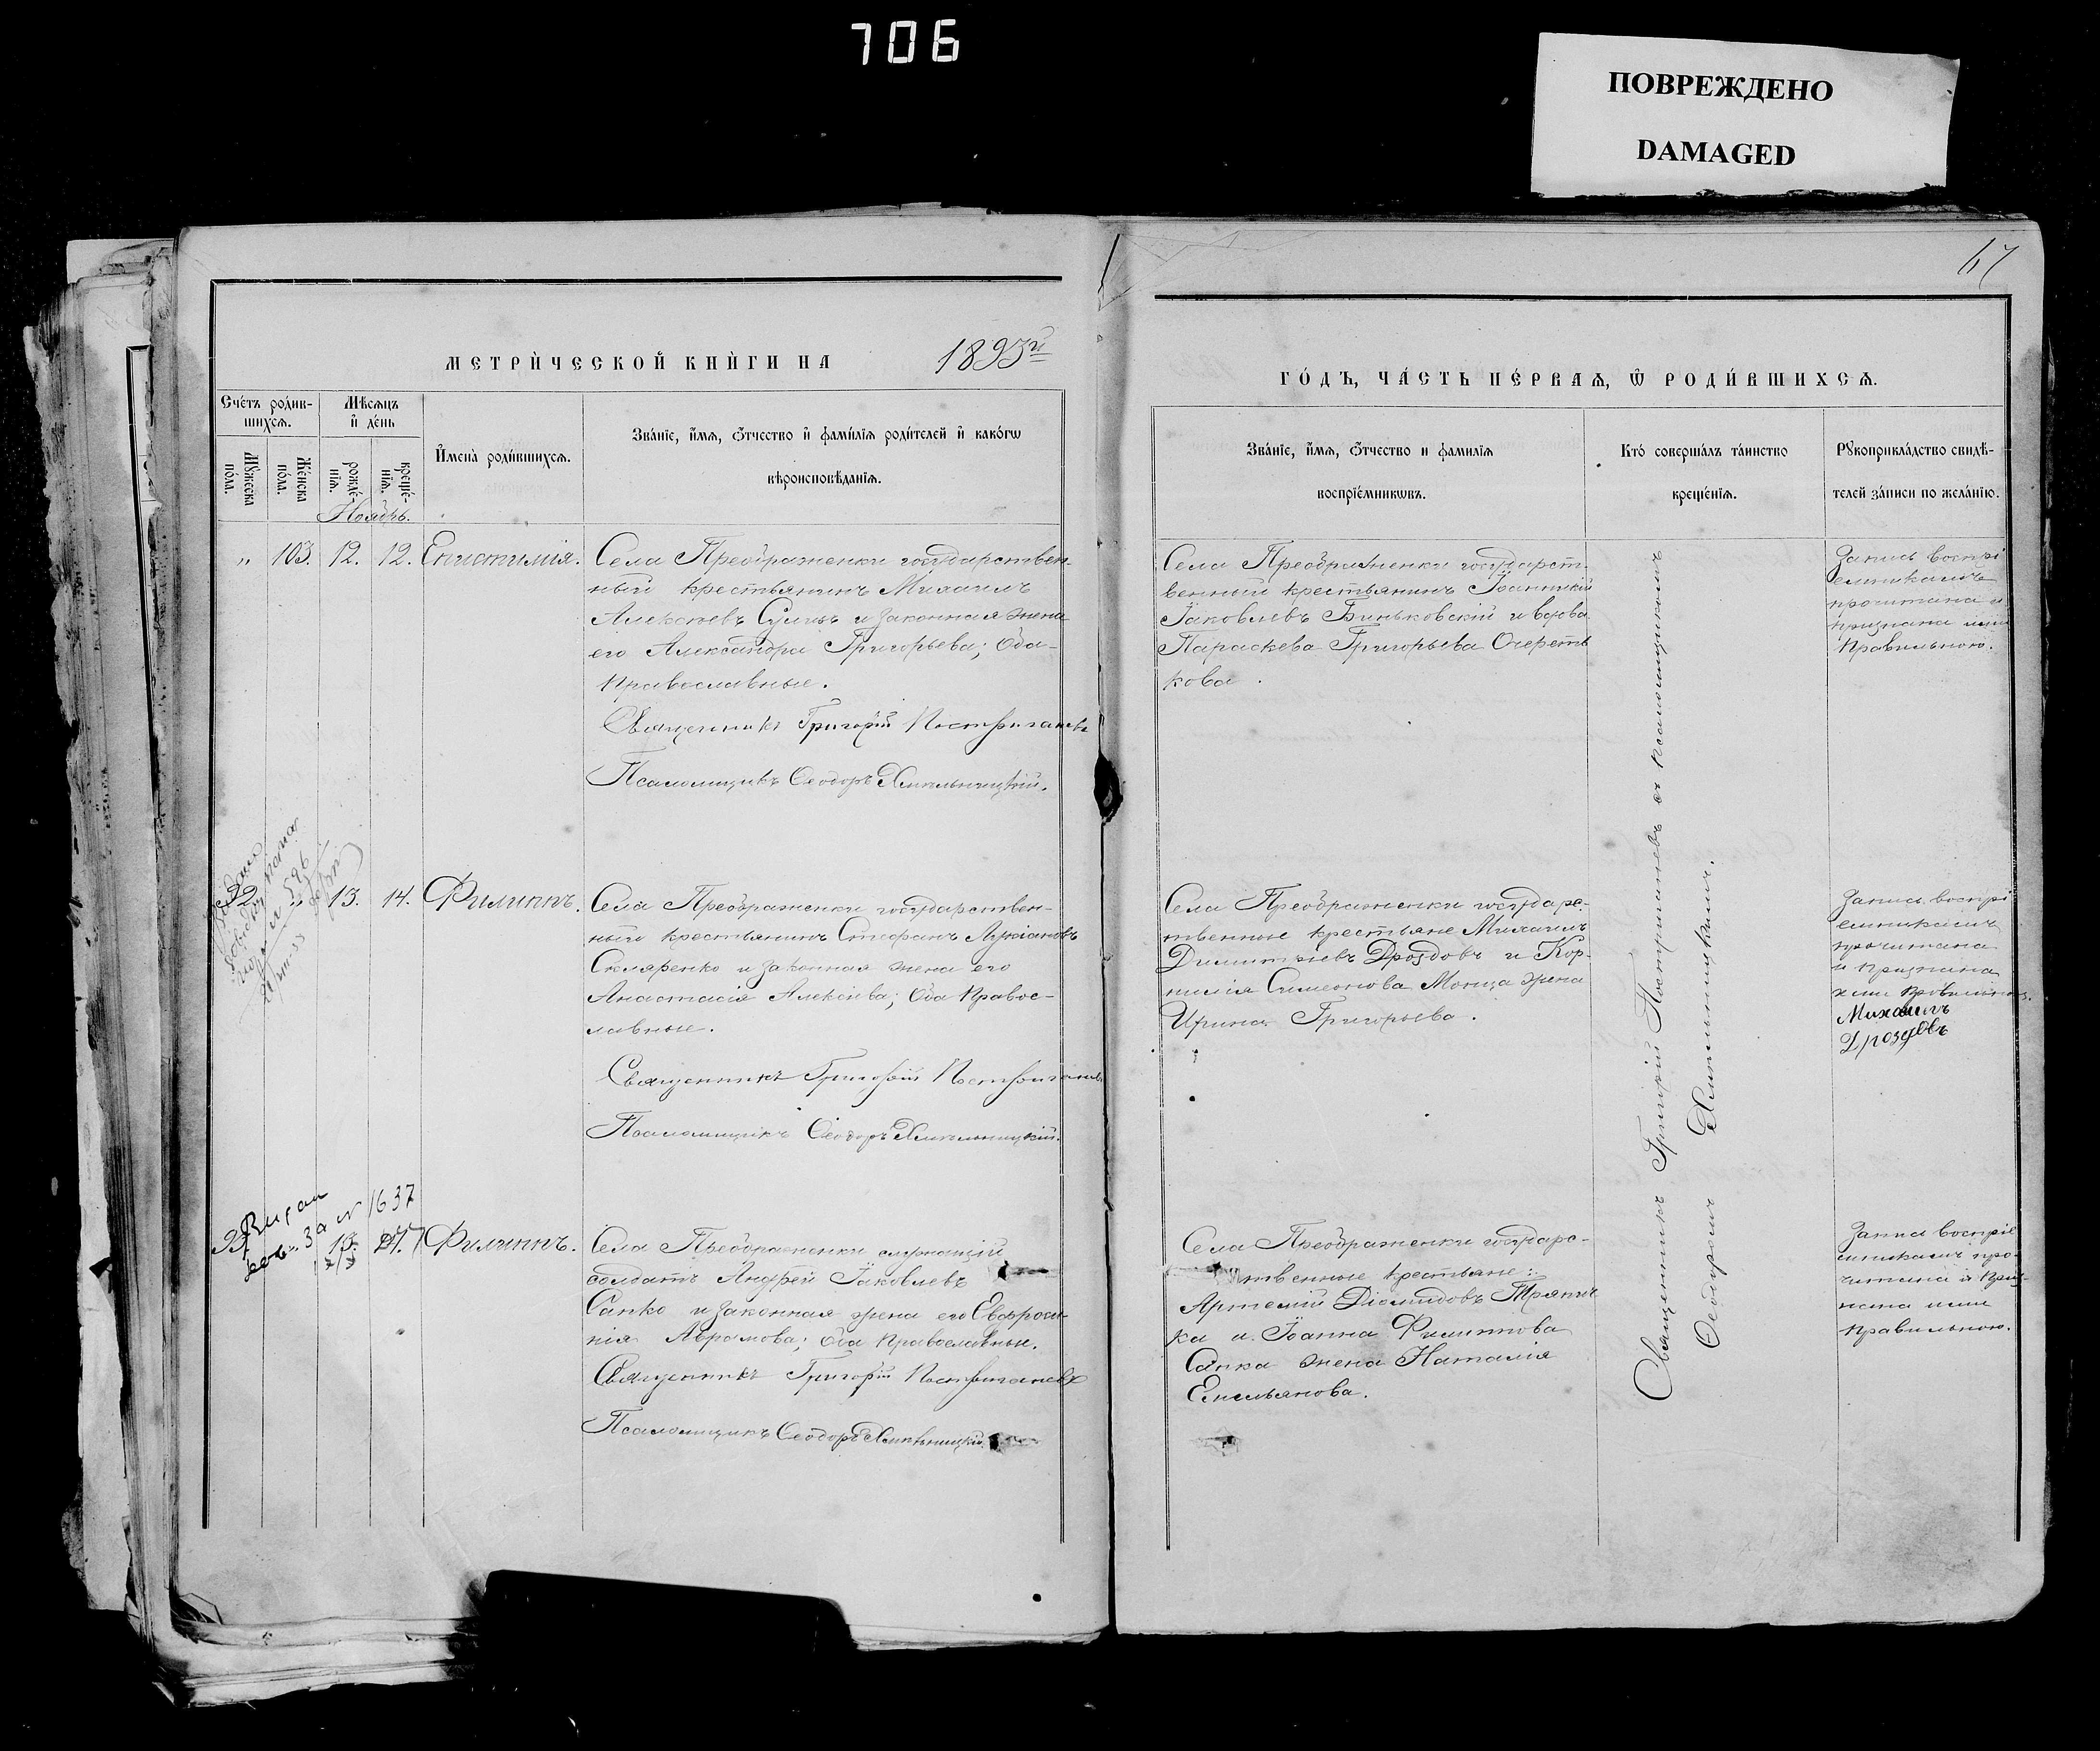 706
ПОВРЕЖДЕНО
DAMAGED
67
МЕТРИ́ЧЕСКОЙ КНИ́ГИ НА 1893й
ГО́ДЪ, ЧА́СТЬ ПЕ́РВАѦ, Ѡ҆ РОДИ́ВШИХСѦ.
Сче́тъ роди́в-
шихсѧ.
Мꙋ́жеска
по́ла.
Же́нска
по́ла.
Мѣ́сѧцъ
и҆ де́нь
рожде́-
нїѧ.
креще́-
нїѧ.
Ноябрь.
И҆мена̀ роди́вшихсѧ.
Зва́нїе, и҆́мѧ, ѻ҆́тчество и҆ фами́лїѧ роди́телей и҆ како́гѡ
вѣроисповѣ́данїѧ.
Зва́нїе, и҆́мѧ, ѻ҆́тчество и фами́лїѧ
воспрїе́мникѡвъ.
Кто́ соверша́лъ та́инство
креще́нїѧ.
Рꙋкоприкла́дство свидѣ́-
телей за́писи по жела́нїю.
" 103. 12. 12. Епистимія.
Села Преображенки государствен-
ный крестьянинъ Михаилъ
Алексѣевъ и законная жена
его Александра Григорьева; оба
православные.
Священникъ Григорій Постриганевъ
Псаломщикъ Ѳеодоръ Хмельницкій.
Села Преображенки государст-
венный крестьянинъ Іоанникій
Іаковлевъ Биньковскій и вдова
Параскева Григорьева Очереть
кова.
Запись воспрі
емникамъ
прочитана и
признана ими
правильною.
32. " 13. 14. Филиппъ.
Села Преображенки государствен-
ный крестьянинъ Стефанъ Лукіановъ
Скляренко и законная жена его
Анастасія Алексіева; оба правос-
лавные.
Священникъ Григорій Постриганевъ
Псаломщикъ Ѳеодоръ Хмельницкій.
Села Преображенки государс-
твенные крестьяне Михаилъ
Димитріевъ Дроздовъ и Кор-
нилія Симеонова жена
Ирина Григорьева.
Запись воспрі
емникамъ
прочитана
и признана
ими правильною.
Михаилъ
Дроздовъ
за № 1637
33. " 13. 14. Филиппъ.
Села Преображенки служащій
солдатъ Андрей Іаковлевъ
Сапко и законная жена его Евфроси-
нія Аврамова; оба православные.
Священникъ Григорій Постриганевъ
Псаломщикъ Ѳеодоръ Хмельницкій
Села Преображенки государс-
твенные крестьяне:
Артемій Діомидовъ Трянич
ка и Іоанна Филиппова
Сапка жена Наталія
Емельянова.
Священникъ Григорій Постриганевъ съ псаломщикомъ
Ѳеодоромъ Хмельницкимъ.
Запись воспріе
мникамъ про-
читана и приз-
нана ими
правильною.